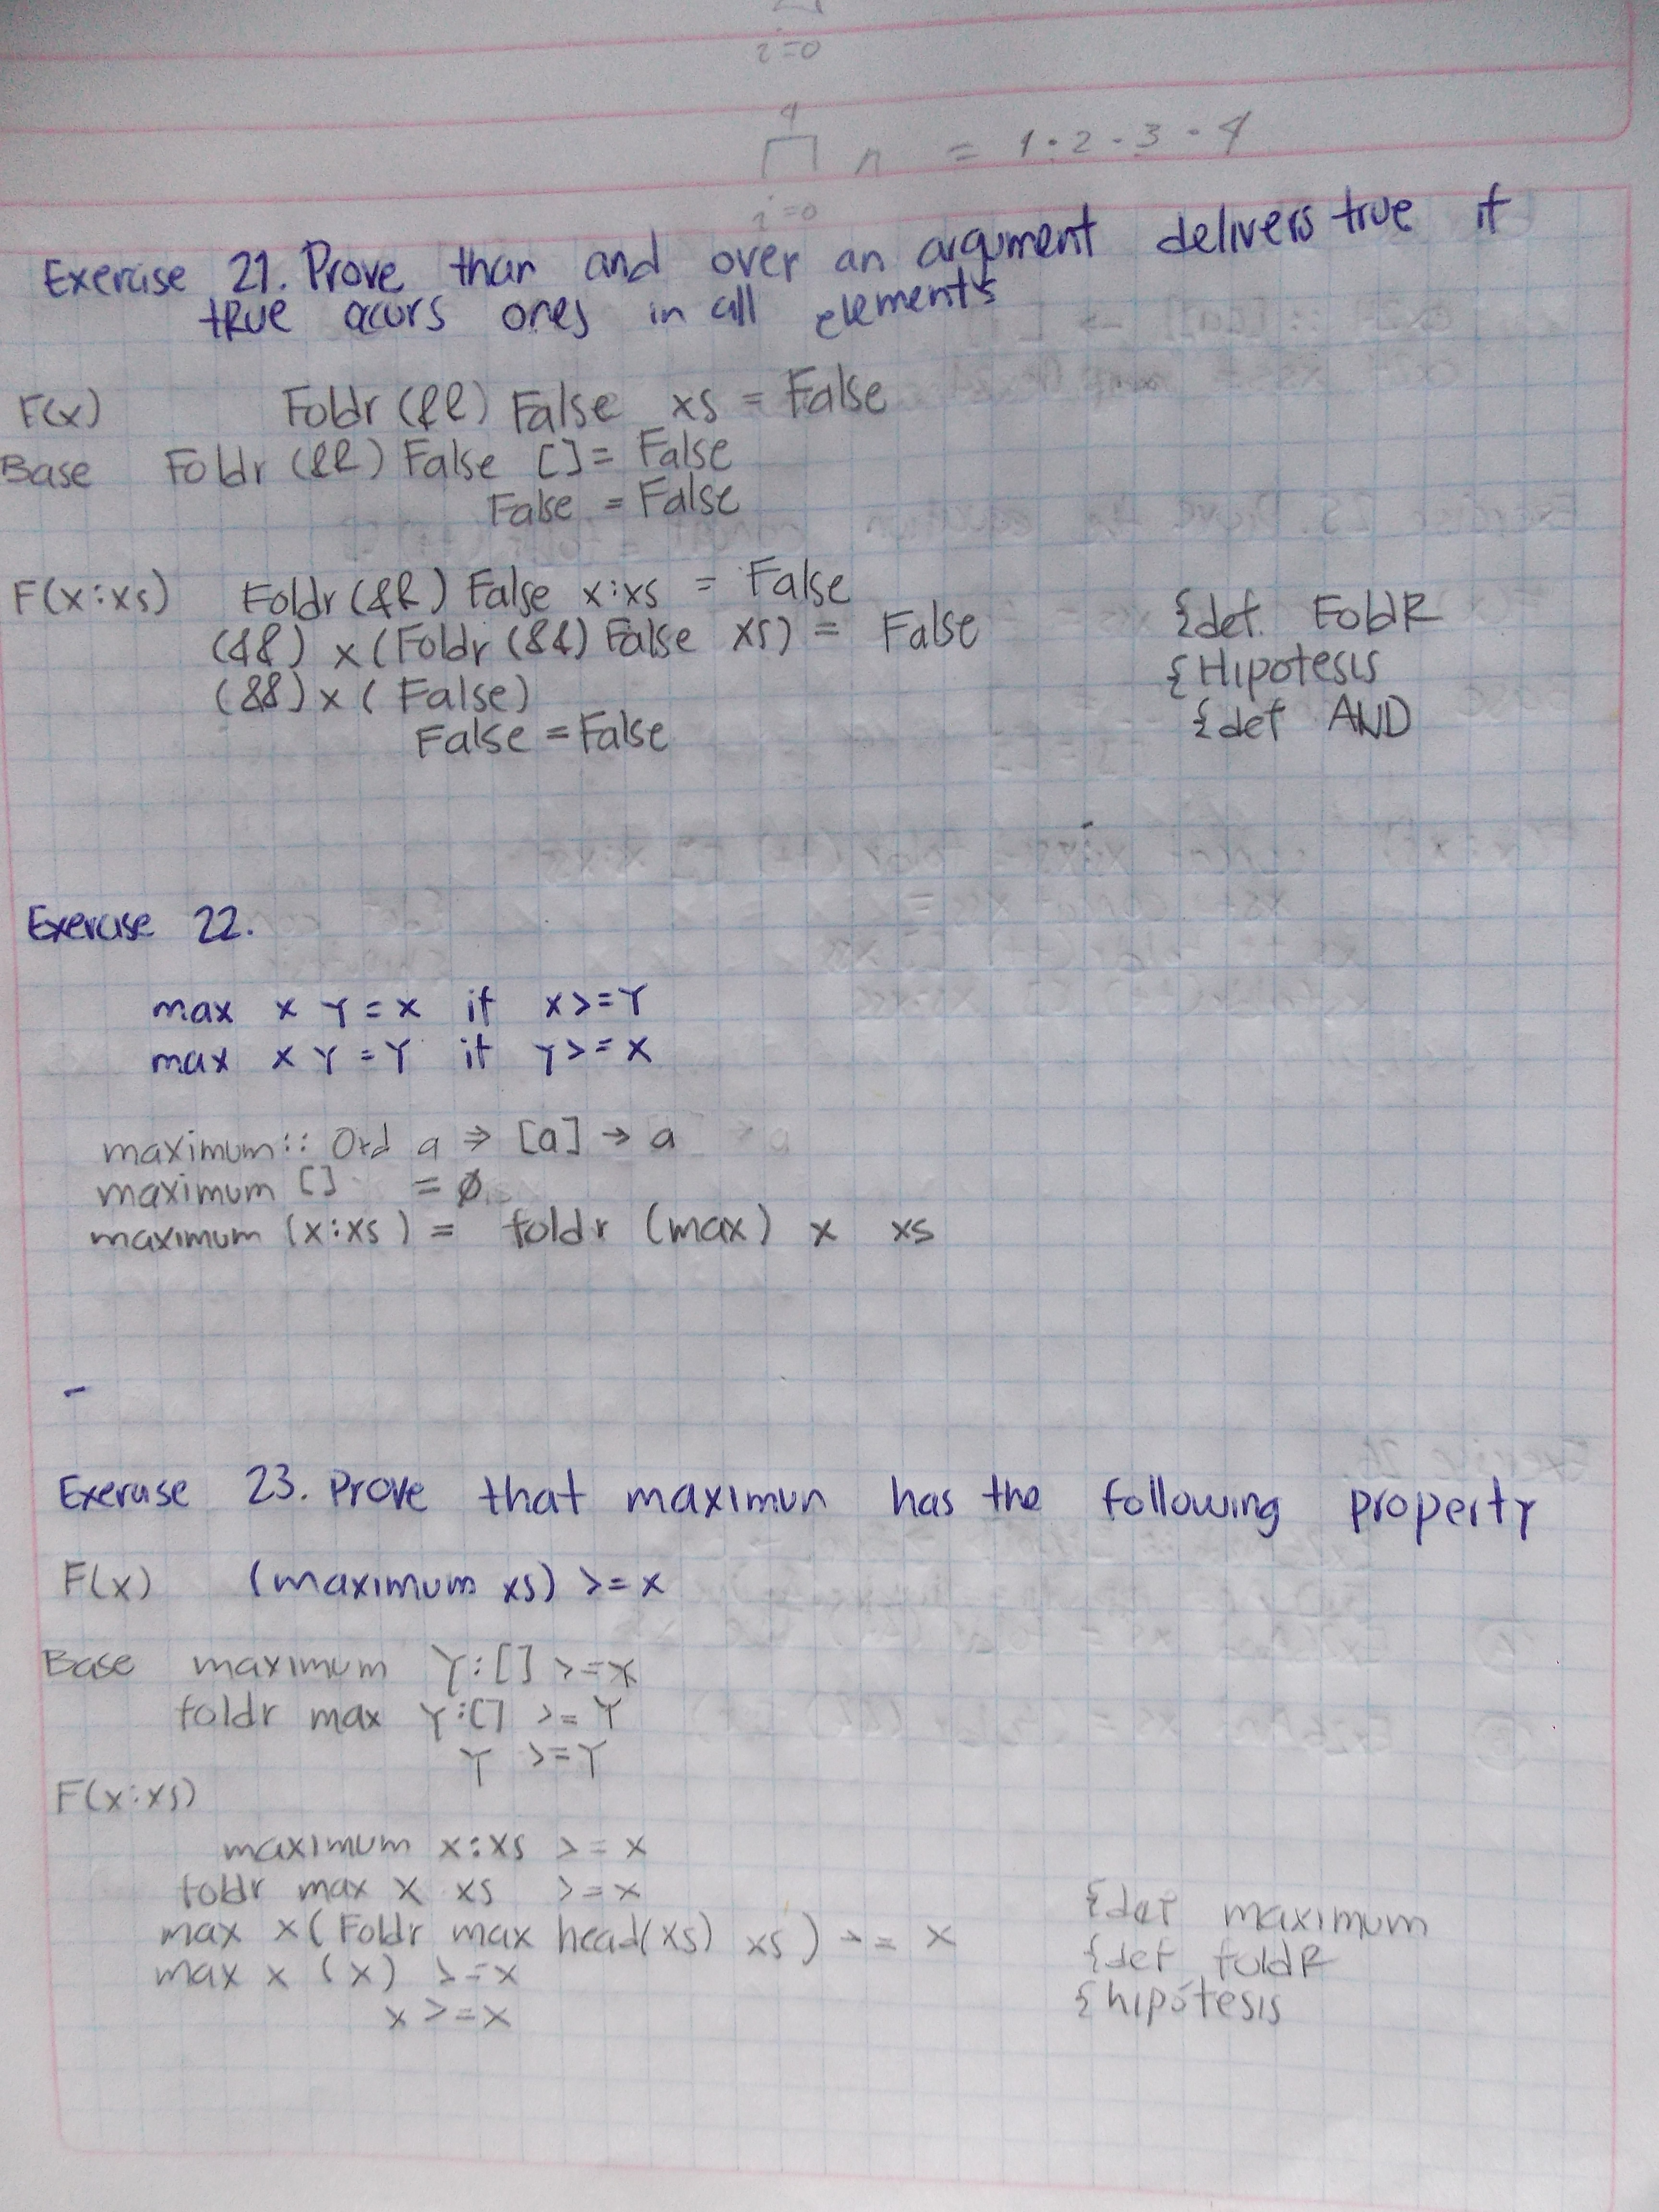 i=0
4
∏ n = 1·2·3·4
i=0
Exercise 21. Prove than and over an argument delivers true if
true acurs ones in all elements
F(x) Foldr (&&) False xs = False
Base Foldr (&&) False []= False
False = False
F(x:xs) Foldr (&&) False x:xs = False
(&&) x (Foldr (&&) False xs) = False {def. FoldR
(&&) x ( False) {Hipotesis
False = False {def AND
Exercise 22.
max x Y = x if x >= Y
max x Y = Y if Y >= x
maximum:: Ord a ⇒ [a] → a
maximum [] = ∅
maximum (x:xs) = foldr (max) x xs
Exercise 23. Prove that maximun has the following property
F(x) (maximum xs) >= x
Base maximum Y:[] >= x
foldr max Y:[] >= Y
Y >= Y
F(x:xs)
maximum x:xs >= x
foldr max x xs >= x {def maximum
max x (Foldr max head(xs) xs) >= x {def foldR
max x (x) >= x {hipótesis
x >= x